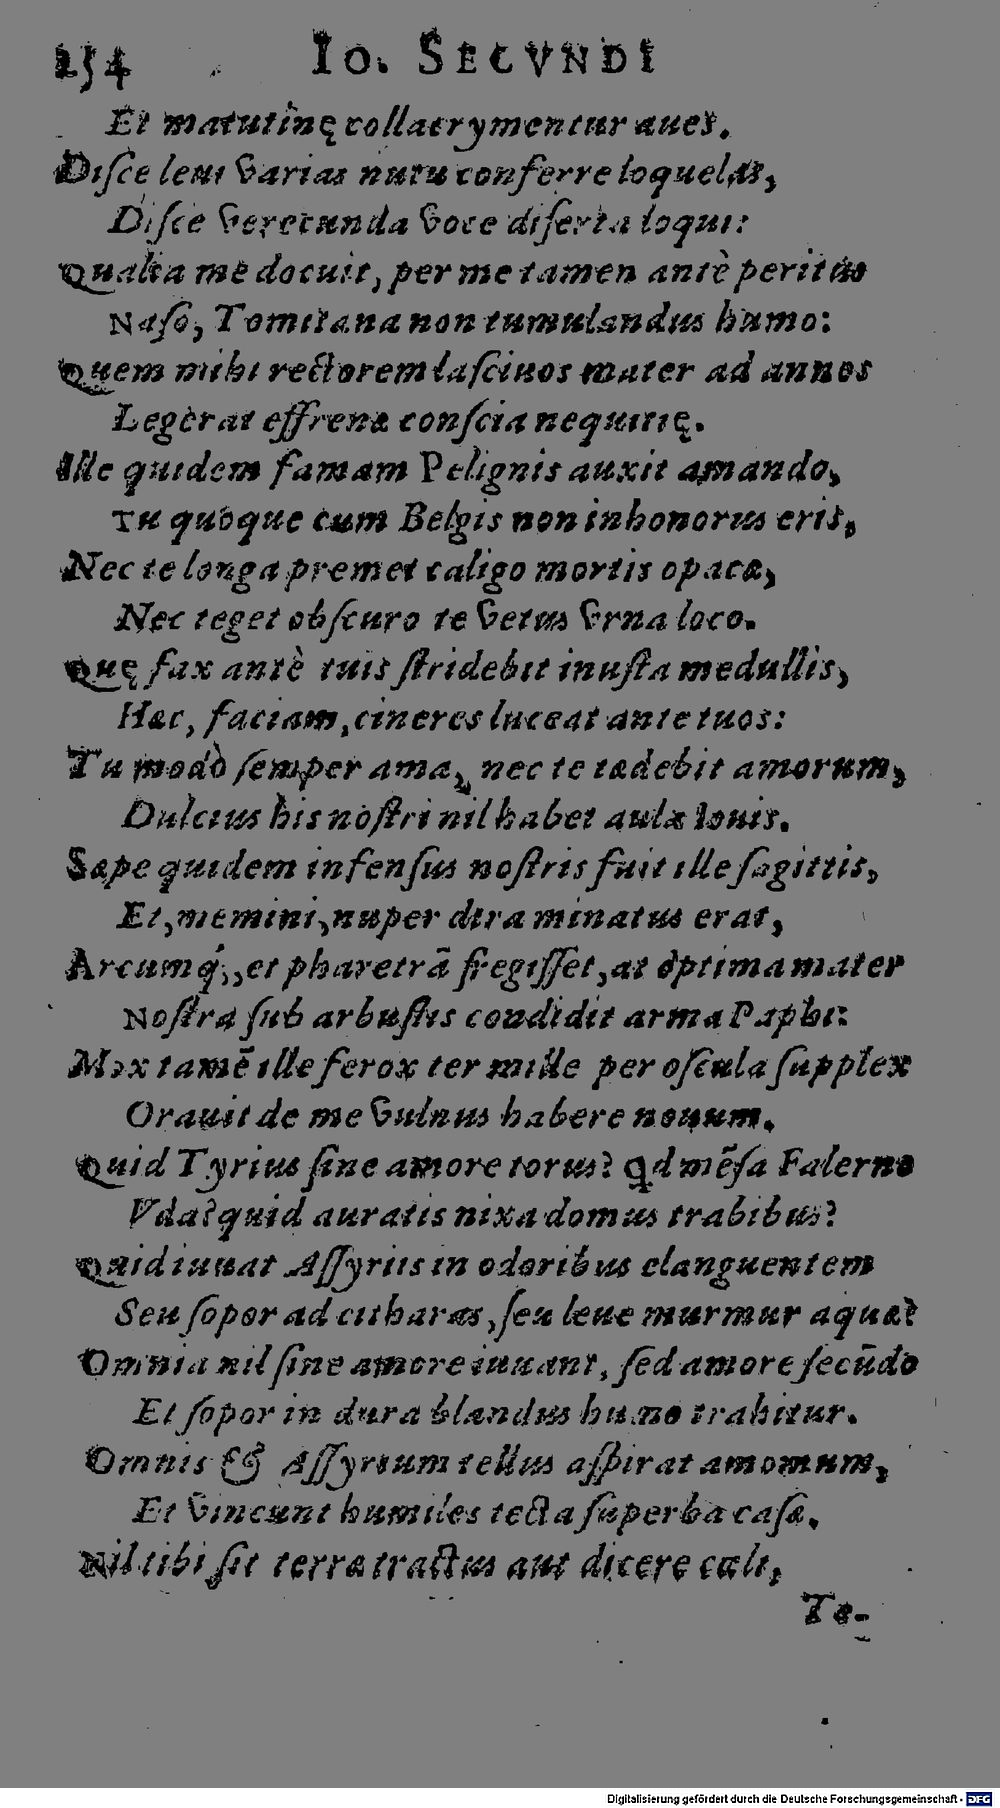 254 IO. SECVNDI
Et matutinę collacrymentur aues.
Disce leui varias nutu conferre loquelas,
Disce verecunda voce diserta loqui:
Qualia me docuit, per me tamen antè peritus
Naso, Tomitana non tumulandus humo:
Quem mihi rectorem lasciuos mater ad annos
Legerat effrenæ conscia nequitię.
Ille quidem famam Pelignis auxit amando,
Tu quoque cum Belgis non inhonorus eris,
Nec te longa premet caligo mortis opacæ,
Nec teget obscuro te vetus vrna loco.
Quę fax antè tuis stridebit inusta medullis,
Hæc, faciam, cineres luceat ante tuos:
Tu modò semper ama, nec te tædebit amorum,
Dulcius his nostri nil habet aula Iouis.
Sæpe quidem infensus nostris fuit ille sagittis,
Et, memini, nuper dira minatus erat,
Arcumq́;, et pharetrā fregisset, at optima mater
Nostra sub arbustis condidit arma Paphi:
Mox tamē ille ferox ter mille per oscula supplex
Orauit de me vulnus habere nouum.
Quid Tyrius sine amore torus? qd mēsa Falerno
Vda? quid auratis nixa domus trabibus?
Quid iuuat Assyriis in odoribus elanguentem
Seu sopor ad citharas, seu leue murmur aquæ?
Omnia nil sine amore iuuant, sed amore secūdo
Et sopor in dura blandus humo trahitur.
Omnis & Assyrium tellus aspirat amomum,
Et vincunt humiles tecta superba casæ.
Nil tibi sit terræ tractus aut dicere cœli,
Te-
Digitalisierung gefördert durch die Deutsche Forschungsgemeinschaft - DFG